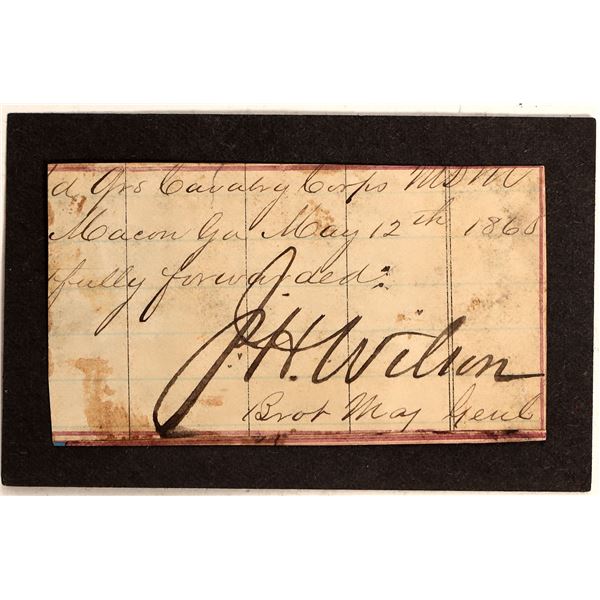 d Qrs Cavalry Corps M D M
Macon Ga May 12th 1865
fully forwarded.
J. H. Wilson
Brvt Maj Genl